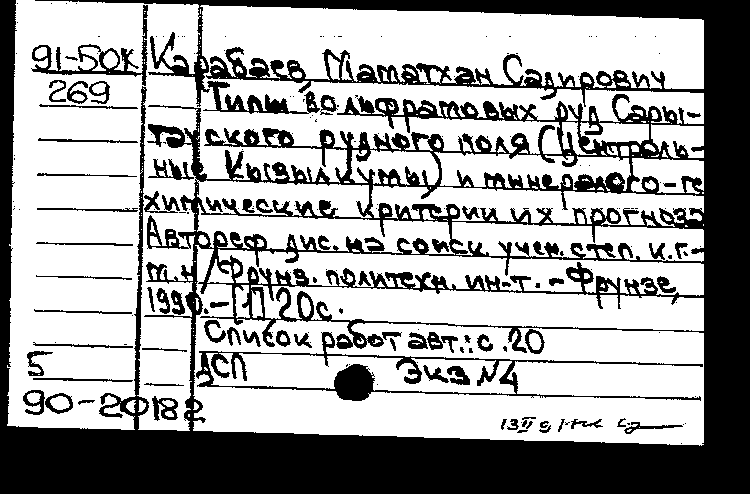 91-50К Карабаев, Маматхан Садирович
269 Типы вольфрамовых руд Сары-
тауского рудного поля (Централь-
ные Кызылкумы) и минералого-ге
химические критерии их прогноза
Автореф. дис. на соиск. учен. степ. к.г.-
м.н / Фрунз. политехн. ин-т. - Фрунзе,
1990. - [1] 20с.
Список работ авт.: с. 20
5 ДСП Экз N4
90-20182